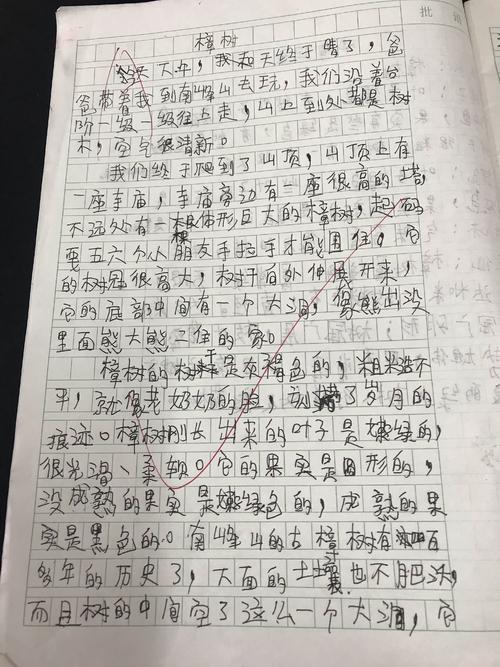 批
樟树
今天下午，我和天终于晴了，爸
爸带着我到南峰山去玩，我们沿着台
阶一级一级往上走，山上到处都是树
木，空气很清新。
我们终于爬到了山顶，山顶上有
一座寺庙，寺庙旁边有一座很高的塔，
不远处有一棵体形巨大的樟树，起码
要五六个小朋友手拉手才能围住。它
的树冠很高大，树干向外伸展开来，
它的底部中间有一个大洞，像熊出没
里面熊大熊二住的家。
樟树的树干是灰褐色的，粗糙不
平，就像老奶奶的脸，刻满了岁月的
痕迹。樟树刚长出来的叶子是嫩绿的，
很光滑、柔软。它的果实是圆形的，
没成熟的果实是嫩绿色的，成熟的果
实是黑色的。南峰山的古樟树有四百
多年的历史了，下面的土壤也不肥沃，
而且树的中间空了这么一个大洞，它